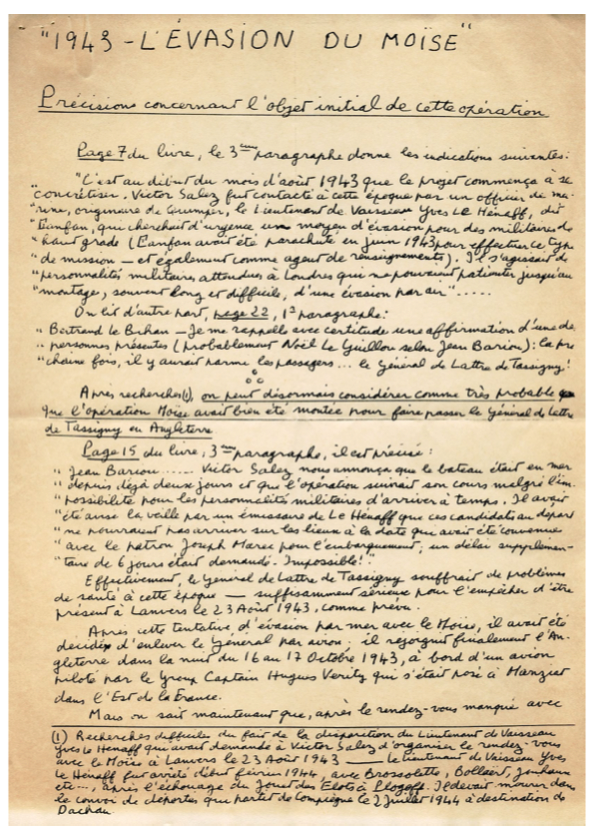 "1943 - L'ÉVASION DU MOÏSE"
Précisions concernant l'objet initial de cette opération
Page 7 du livre, le 3ème paragraphe donne les indications suivantes:
"C'est au début du mois d'août 1943 que le projet commença à se
"concrétiser. Victor Salez fut contacté à cette époque par un officier de ma-
"rine, originaire de Quimper, le Lieutenant de Vaisseau Yves Le Hénaff, dit
"Fanfan, qui cherchait d'urgence un moyen d'évasion pour des militaires de
"haut grade (Fanfan avait été parachuté en juin 1943 pour effectuer ce type
"de mission — et également comme agent de renseignements). Il s'agissait de
"personnalités militaires attendues à Londres qui ne pouvaient patienter jusqu'au
"montage, souvent long et difficile, d'une évasion par air".....
On lit d'autre part, page 22, 1er paragraphe:
"Bertrand le Bihan — Je me rappelle avec certitude une affirmation d'une des
"personnes présentes (probablement Noël Le Guillou selon Jean Bariou): la pro
"chaine fois, il y aurait parmi les passagers... le Général de Lattre de Tassigny!
Après recherches(1), on peut désormais considérer comme très probable que
que l'opération Moïse avait bien été montée pour faire passer le Général de Lattre
de Tassigny en Angleterre
Page 15 du livre, 3ème paragraphe, il est précisé:
"Jean Bariou ...... Victor Salez nous annonça que le bateau était en mer
"depuis déjà deux jours et que l'opération suivait son cours malgré l'im-
"possibilité pour les personnalités militaires d'arriver à temps. Il avait
"été avisé la veille par un émissaire de Le Hénaff que ces candidats au départ
"ne pourraient pas arriver sur les lieux à la date qui avait été convenue
"avec le patron Joseph Marec pour l'embarquement; un délai supplémen-
"taire de 6 jours était demandé. Impossible!"
Effectivement, le Général de Lattre de Tassigny souffrait de problèmes
de santé à cette époque — suffisamment sérieux pour l'empêcher d'être
présent à Lanvers le 23 Août 1943, comme prévu.
Après cette tentative d'évasion par mer avec le Moïse, il avait été
décidé d'enlever le Général par avion: il rejoignit finalement l'An-
gleterre dans la nuit du 16 au 17 Octobre 1943, à bord d'un avion
piloté par le Group Captain Hugues Verity qui s'était posé à Manziat
dans l'Est de la France.
Mais on sait maintenant que, après le rendez-vous manqué avec
(1) Recherches difficiles du fait de la disparition du Lieutenant de Vaisseau
Yves Le Hénaff qui avait demandé à Victor Salez d'organiser le rendez-vous
avec le Moïse à Lanvers le 23 Août 1943 — Le Lieutenant de Vaisseau Yves
Le Hénaff fut arrêté début février 1944, avec Brossolette, Bollaert, Jouhanno
etc..., après l'échouage du Jouet des Flots à Plogoff. Il devait mourir dans
le convoi de déportés qui partit de Compiègne le 2 juillet 1944 à destination de
Dachau